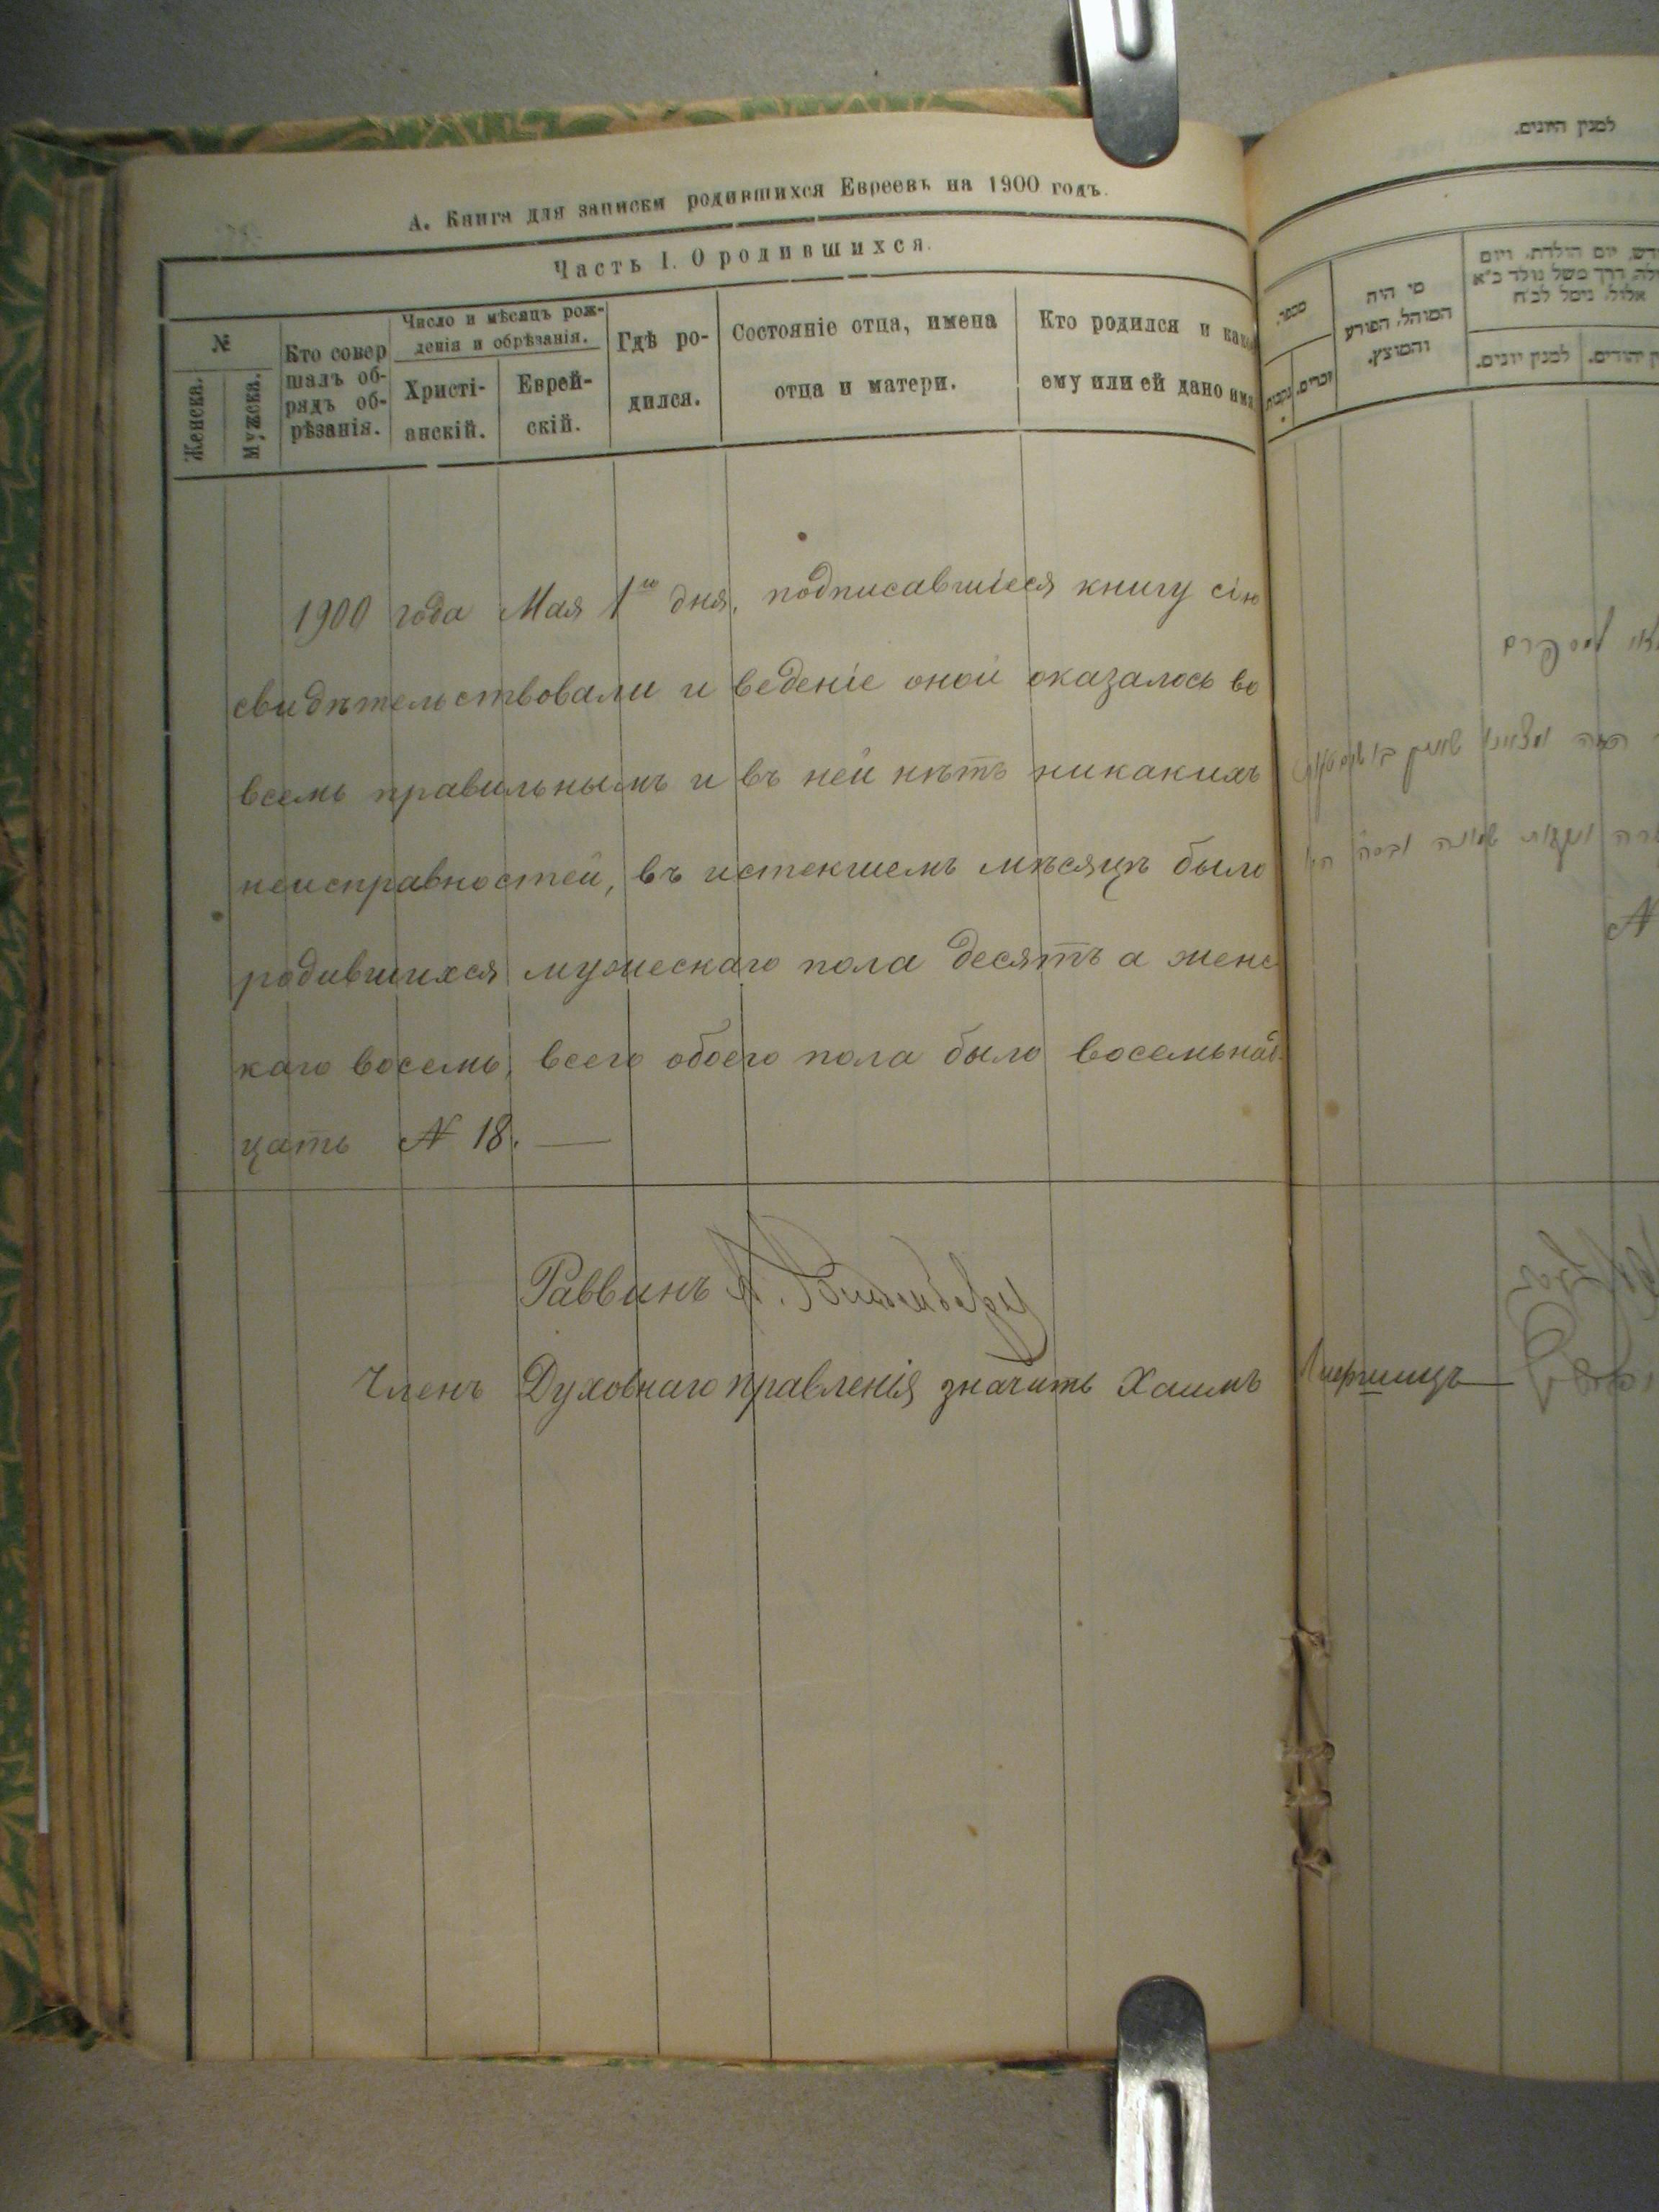 А. Книга для записки родившихся Евреевъ на 1900 годъ.
Часть I. О родившихся.
№
Женска.
Мужска.
Кто совер
шалъ об-
рядъ об-
рѣзанія.
Число и мѣсяцъ рож-
денія и обрѣзанія.
Христі-
анскій.
Еврей-
скій.
Гдѣ ро-
дился.
Состояніе отца, имена
отца и матери.
Кто родился и какое
ему или ей дано имя
1900 года Мая 1го дня, подписавшіеся книгу сію
свидѣтельствовали и веденіе оной оказалось во
всемъ правильнымъ и въ ней нѣтъ никакихъ
неисправностей, въ истекшемъ мѣсяцѣ было
родившихся мужескаго пола десять а женс
каго восемь, всего обоего пола было восемьнад-
цать № 18. —
Раввинъ А.
Членъ Духовнаго правленія значить Хаимъ
למנין היונים.
מספר.
נקבות
זכרים.
מי היה
המוהל, הפורע
והמוצץ.
יום הולדת, ויום
דרך משל נולד כ״א
אלול, ניסל לכ״ח
יהודים.
למנין יונים.
№